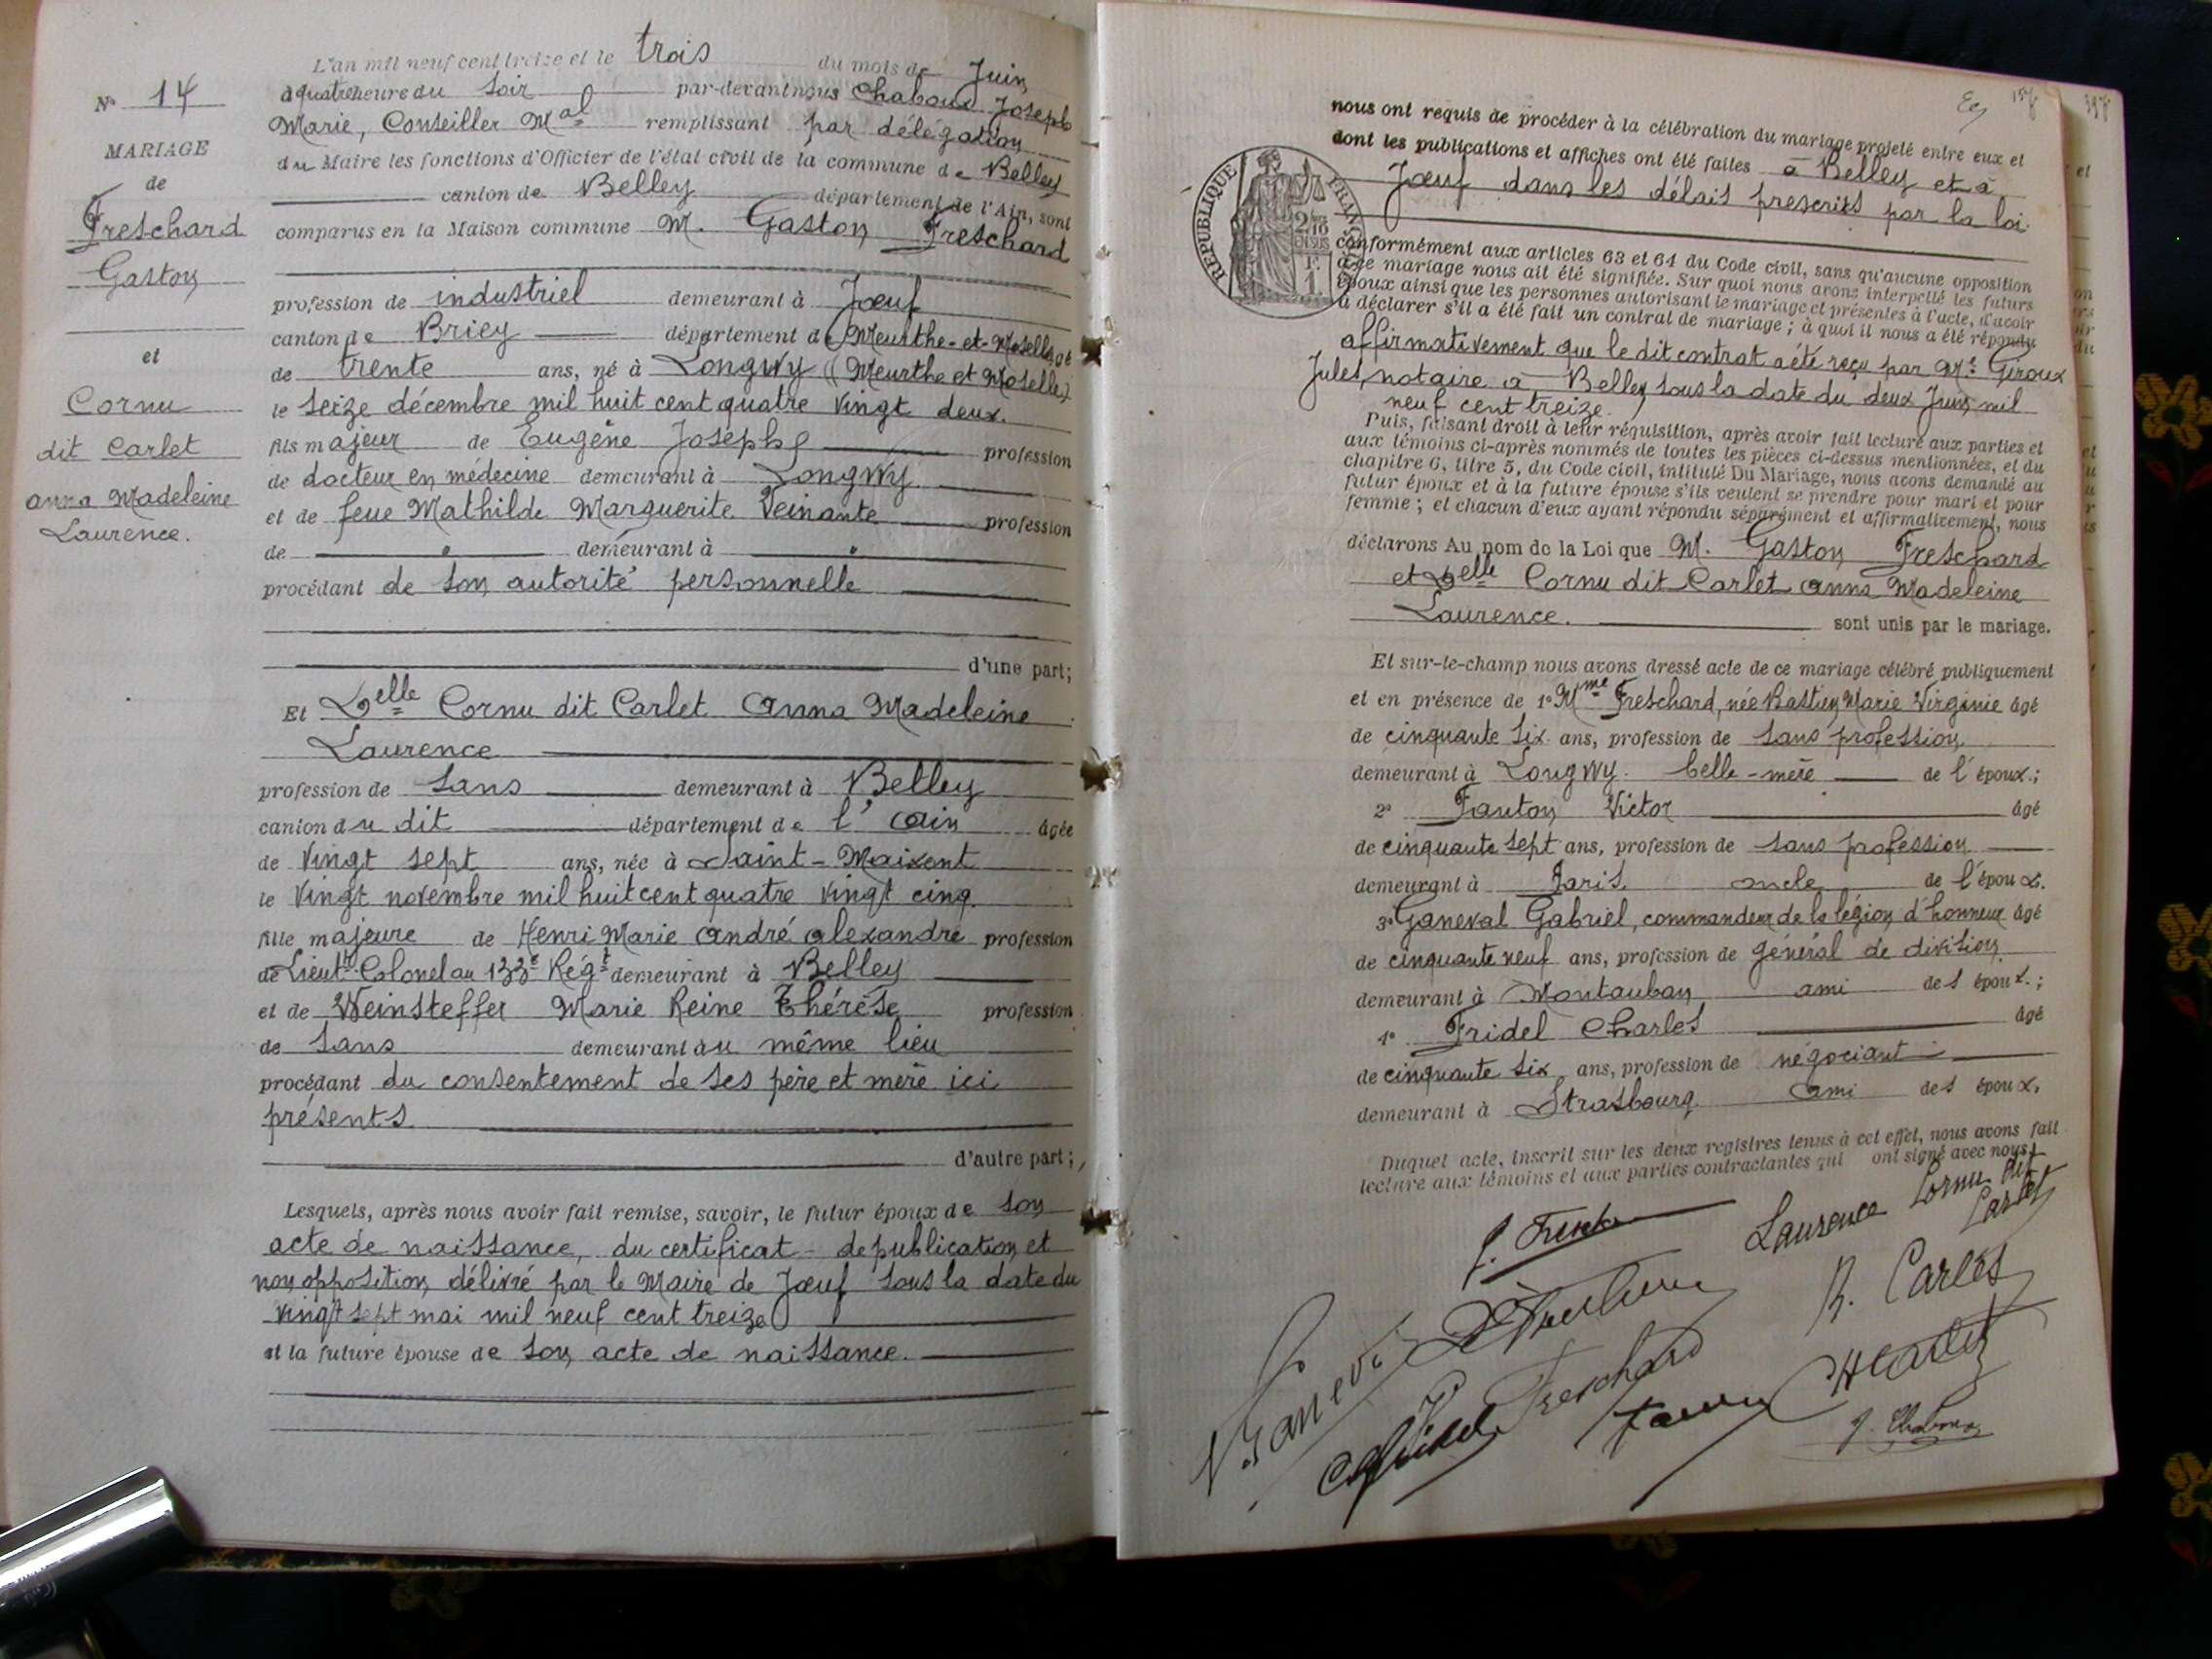 N° 14
MARIAGE
de
Freschard
Gaston
et
Cornu
dit Carlet
Anna Madeleine
Laurence.
L'an mil neuf cent treize et le trois du mois de Juin
à quatre heure du soir par-devant nous Chaboux Joseph
Marie, Conseiller Mal remplissant par délégation
du Maire les fonctions d'Officier de l'état civil de la commune de Belley
canton de Belley département de l'Ain, sont
comparus en la Maison commune M. Gaston Freschard
profession de industriel demeurant à Jœuf
canton de Briey département de Meurthe-et-Moselle âgé
de trente ans, né à Longwy (Meurthe et Moselle)
le seize décembre mil huit cent quatre vingt deux.
fils majeur de Eugène Joseph profession
de docteur en médecine demeurant à Longwy
et de feue Mathilde Marguerite Veinante profession
de demeurant à
procédant de son autorité personnelle
d'une part;
Et Delle Cornu dit Carlet Anna Madeleine
Laurence
profession de sans demeurant à Belley
canton du dit département de l'Ain âgée
de vingt sept ans, née à Saint-Maixent
le vingt novembre mil huit cent quatre vingt cinq
fille majeure de Henri Marie André Alexandre profession
de Lieutt Colonel au 133e Régt demeurant à Belley
et de Weinsteffer Marie Reine Thérèse profession
de sans demeurant au même lieu
procédant du consentement de ses père et mère ici
présents
d'autre part;
Lesquels, après nous avoir fait remise, savoir, le futur époux de son
acte de naissance, du certificat de publication et
non opposition délivré par le Maire de Jœuf sous la date du
vingt sept mai mil neuf cent treize
et la future épouse de son acte de naissance.
157
nous ont requis de procéder à la célébration du mariage projeté entre eux et
dont les publications et affiches ont été faites à Belley et à
Jœuf dans les délais prescrits par la loi
RÉPUBLIQUE FRANÇAISE
conformément aux articles 63 et 64 du Code civil, sans qu'aucune opposition
à ce mariage nous ait été signifiée. Sur quoi nous avons interpellé les futurs
époux ainsi que les personnes autorisant le mariage et présentes à l'acte, d'avoir
à déclarer s'il a été fait un contrat de mariage; à quoi il nous a été répondu
affirmativement que le dit contrat a été reçu par Me Giroux
Jules, notaire à Belley sous la date du deux Juin mil
neuf cent treize.
Puis, faisant droit à leur réquisition, après avoir fait lecture aux parties et
aux témoins ci-après nommés de toutes les pièces ci-dessus mentionnées, et du
chapitre 6, titre 5, du Code civil, intitulé Du Mariage, nous avons demandé au
futur époux et à la future épouse s'ils veulent se prendre pour mari et pour
femme; et chacun d'eux ayant répondu séparément et affirmativement, nous
déclarons Au nom de la Loi que M. Gaston Freschard
et Delle Cornu dit Carlet Anna Madeleine
Laurence. sont unis par le mariage.
Et sur-le-champ nous avons dressé acte de ce mariage célébré publiquement
et en présence de 1° Mme Freschard, née Bastien Marie Virginie âgé
de cinquante six ans, profession de sans profession
demeurant à Longwy. belle-mère de l'époux.;
2° Fanton Victor âgé
de cinquante sept ans, profession de sans profession
demeurant à Paris oncle de l'époux.
3° Ganeval Gabriel, commandeur de la légion d'honneur âgé
de cinquante neuf ans, profession de général de division
demeurant à Montauban ami des époux.;
4° Fridel Charles âgé
de cinquante six ans, profession de négociant
demeurant à Strasbourg ami des époux.
Duquel acte, inscrit sur les deux registres tenus à cet effet, nous avons fait
lecture aux témoins et aux parties contractantes qui ont signé avec nous.
Laurence Cornu dit
Carlet
R. Carlet
Ganeval
Freschard
H Carlet
J. Chaboux